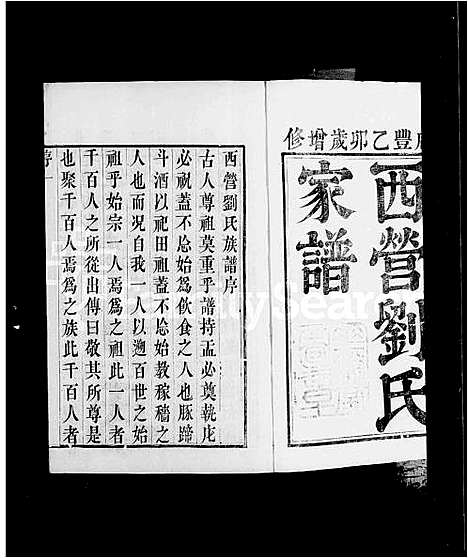 豐乙卯歲增修
西營劉氏
家譜
西營劉氏族譜序
古人尊祖莫重乎譜持盂必奠執庀
必祝蓋不忘始爲飲食之人也豚蹄
斗酒以祀田祖蓋不忘始教稼穡之
人也而况自我一人以遡百世之始
祖乎始宗一人焉爲之祖此一人者
千百人之所從出傳曰敬其所尊是
也聚千百人焉爲之族此千百人者
FamilySearch